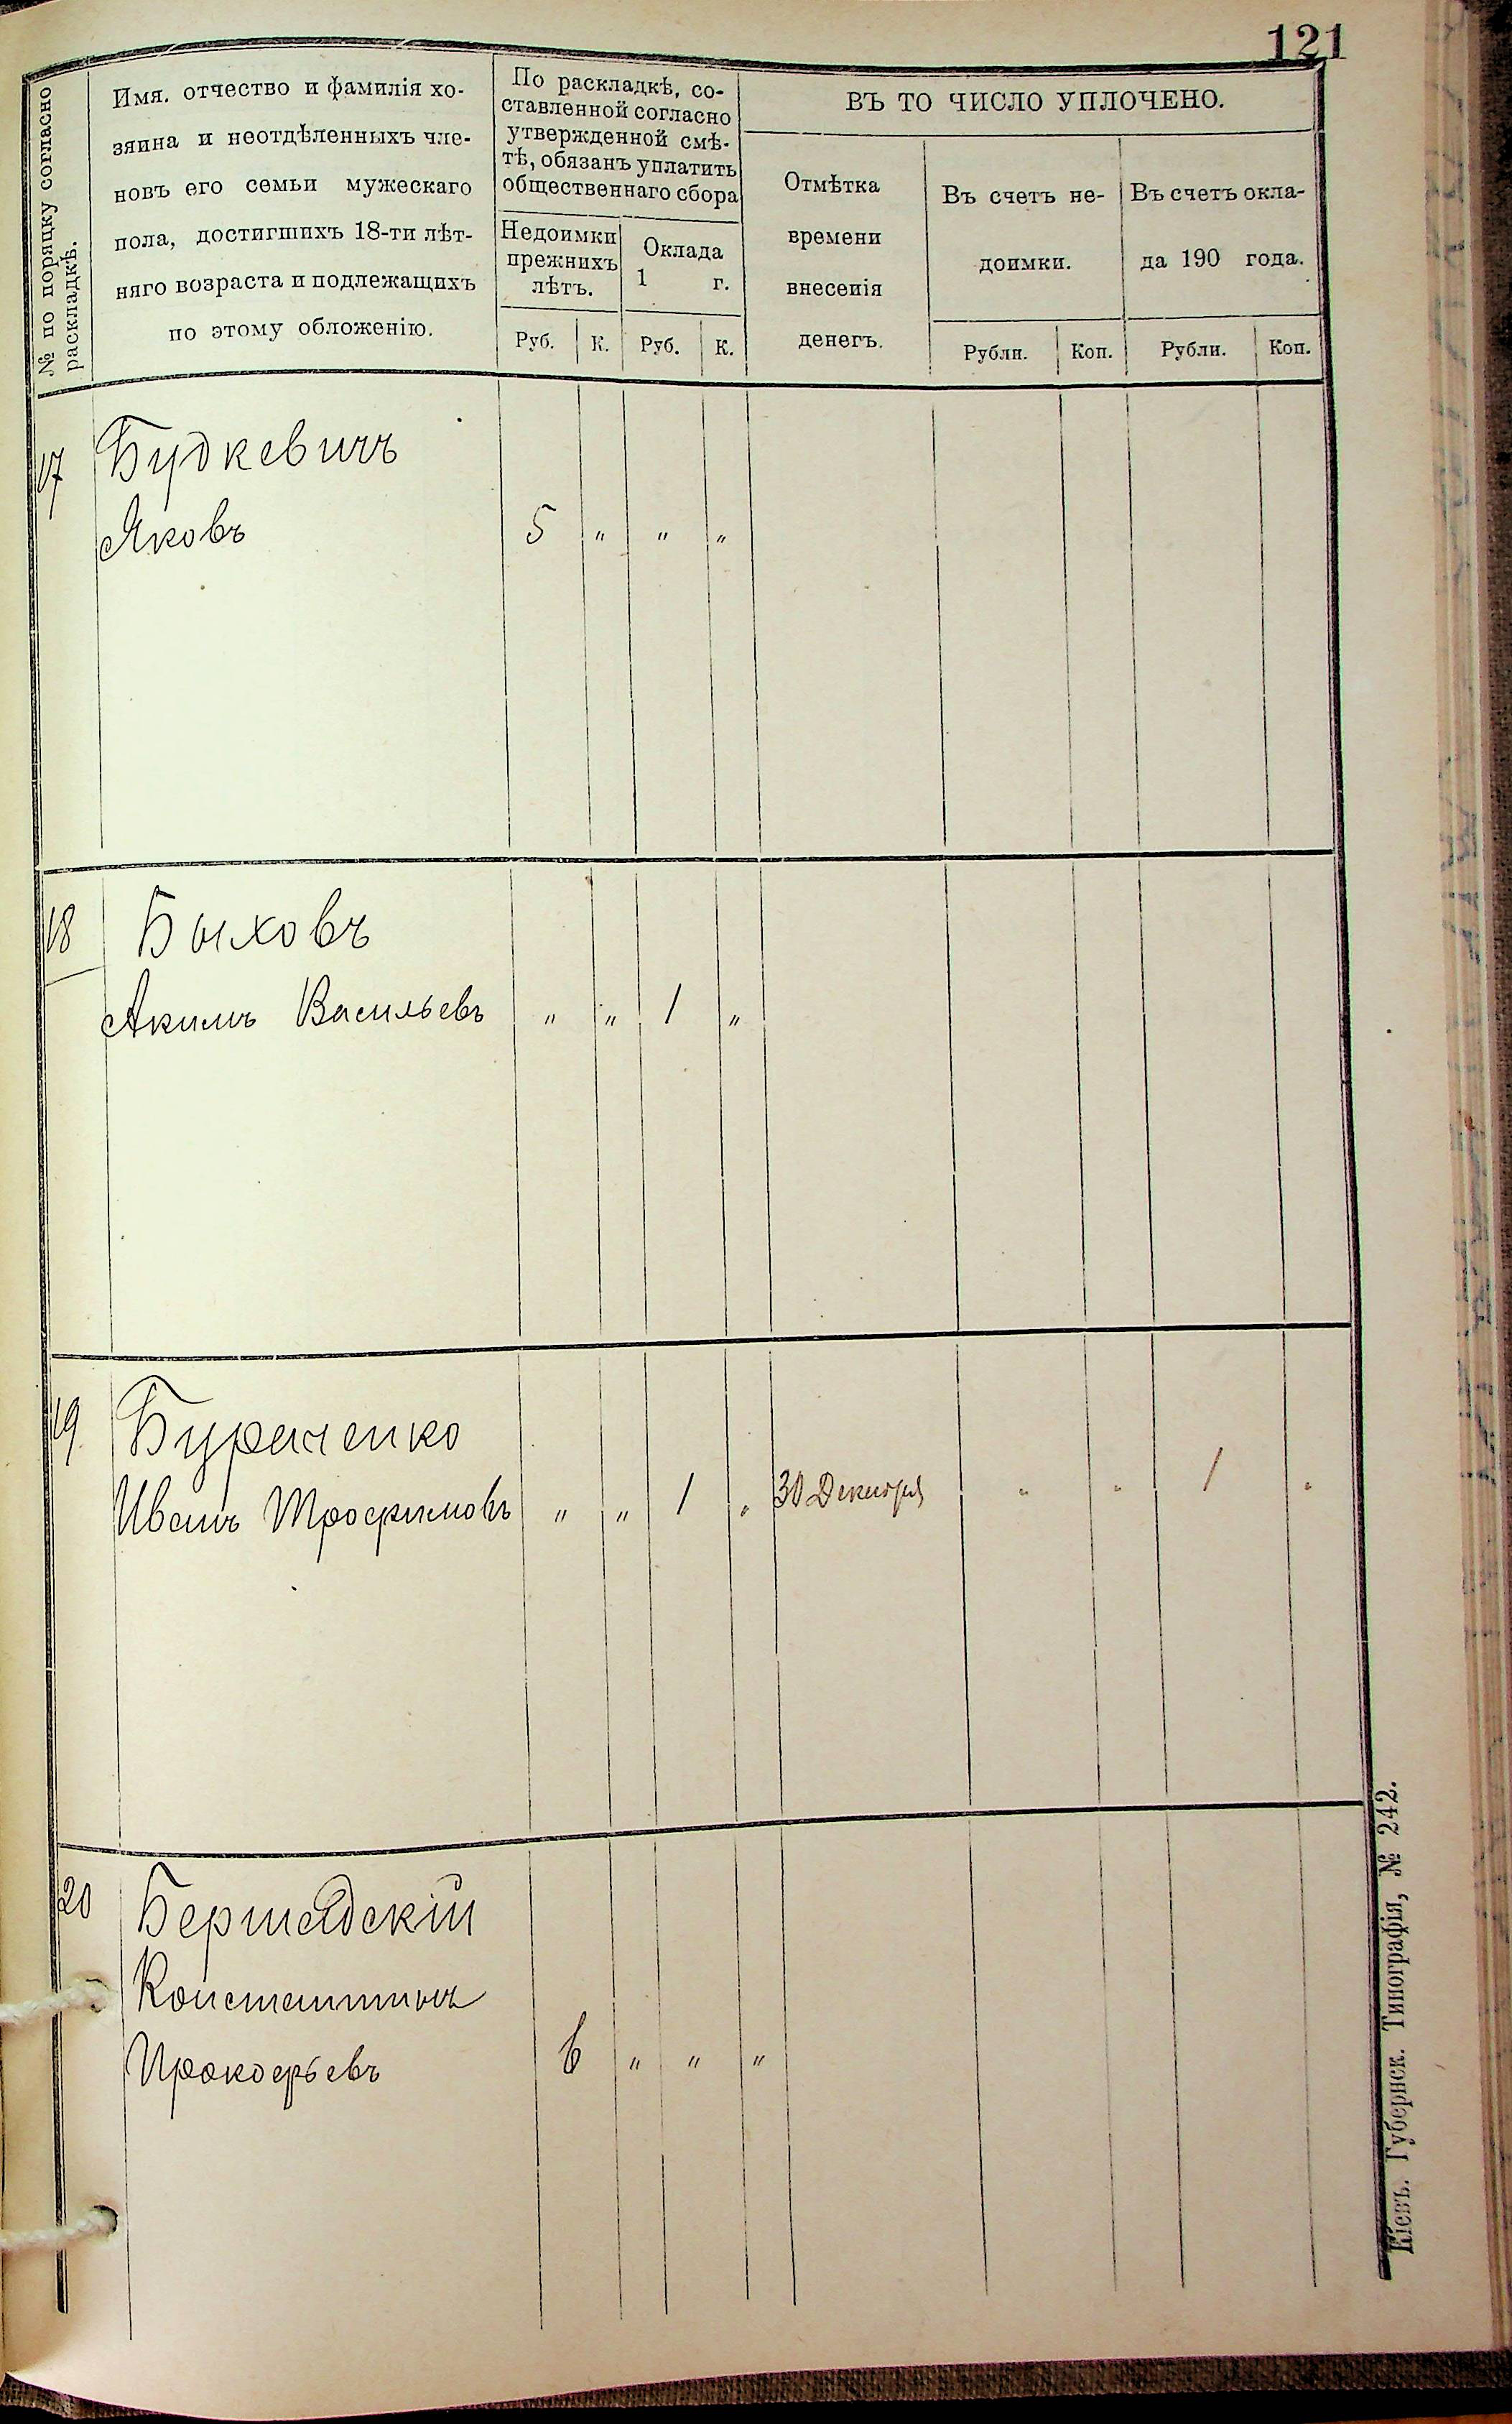 121
№ по порядку согласно
раскладкѣ.
Имя. отчество и фамилія хо-
зяина и неотдѣленныхъ чле-
новъ его семьи мужескаго
пола, достигшихъ 18-ти лѣт-
няго возраста и подлежащихъ
по этому обложенію.
По раскладкѣ, со-
ставленной согласно
утвержденной смѣ-
тѣ, обязанъ уплатить
общественнаго сбора
Недоимки
прежнихъ
лѣтъ.
Оклада
1 г.
Руб. К. Руб. К.
ВЪ ТО ЧИСЛО УПЛОЧЕНО.
Отмѣтка
времени
внесенія
денегъ.
Въ счетъ не-
доимки.
Въ счетъ окла-
да 190 года.
Рубли. Коп. Рубли. Коп.
17 Будкевичъ
Яковъ 5 " " "
18 Быховъ
Акимъ Васильевъ " " 1 "
19 Бураченко
Иванъ Трофимовъ " " 1 " 30 Декабря " " 1 "
20 Бершадскій
Константинъ
Прокофьевъ 6 " " "
Кіевъ. Губернск. Типографія, № 242.